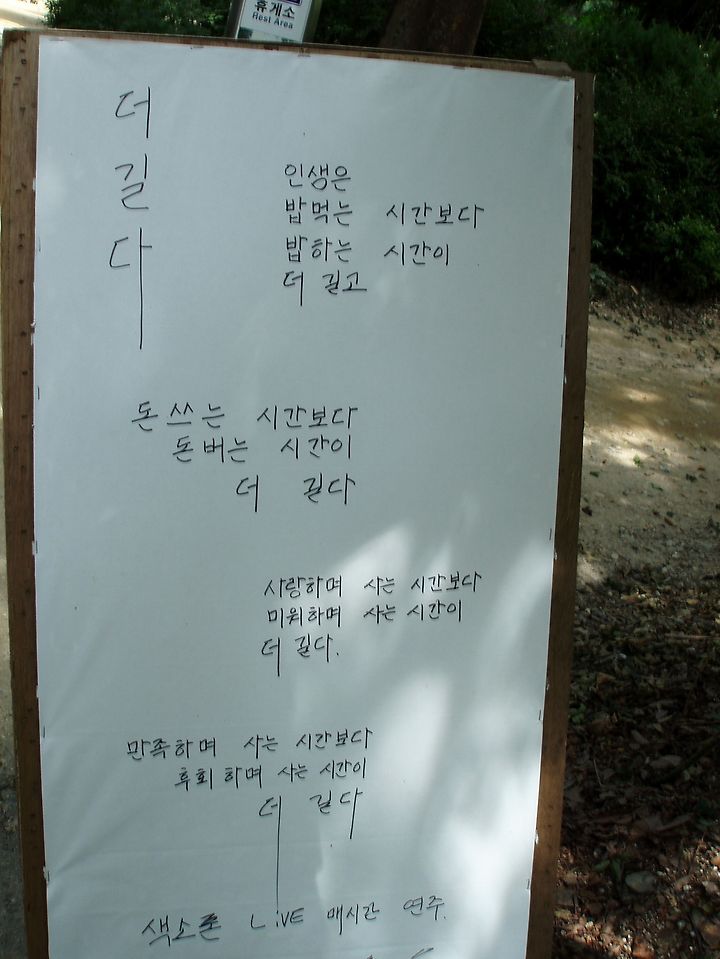 휴게소
Rest Area
더
길
다
인생은
밥먹는 시간보다
밥하는 시간이
더 길고
돈 쓰는 시간보다
돈 버는 시간이
더 길다
사랑하며 사는 시간보다
미워하며 사는 시간이
더 길다.
만족하며 사는 시간보다
후회하며 사는 시간이
더 길다
색소폰 LiVE 매시간 연주.